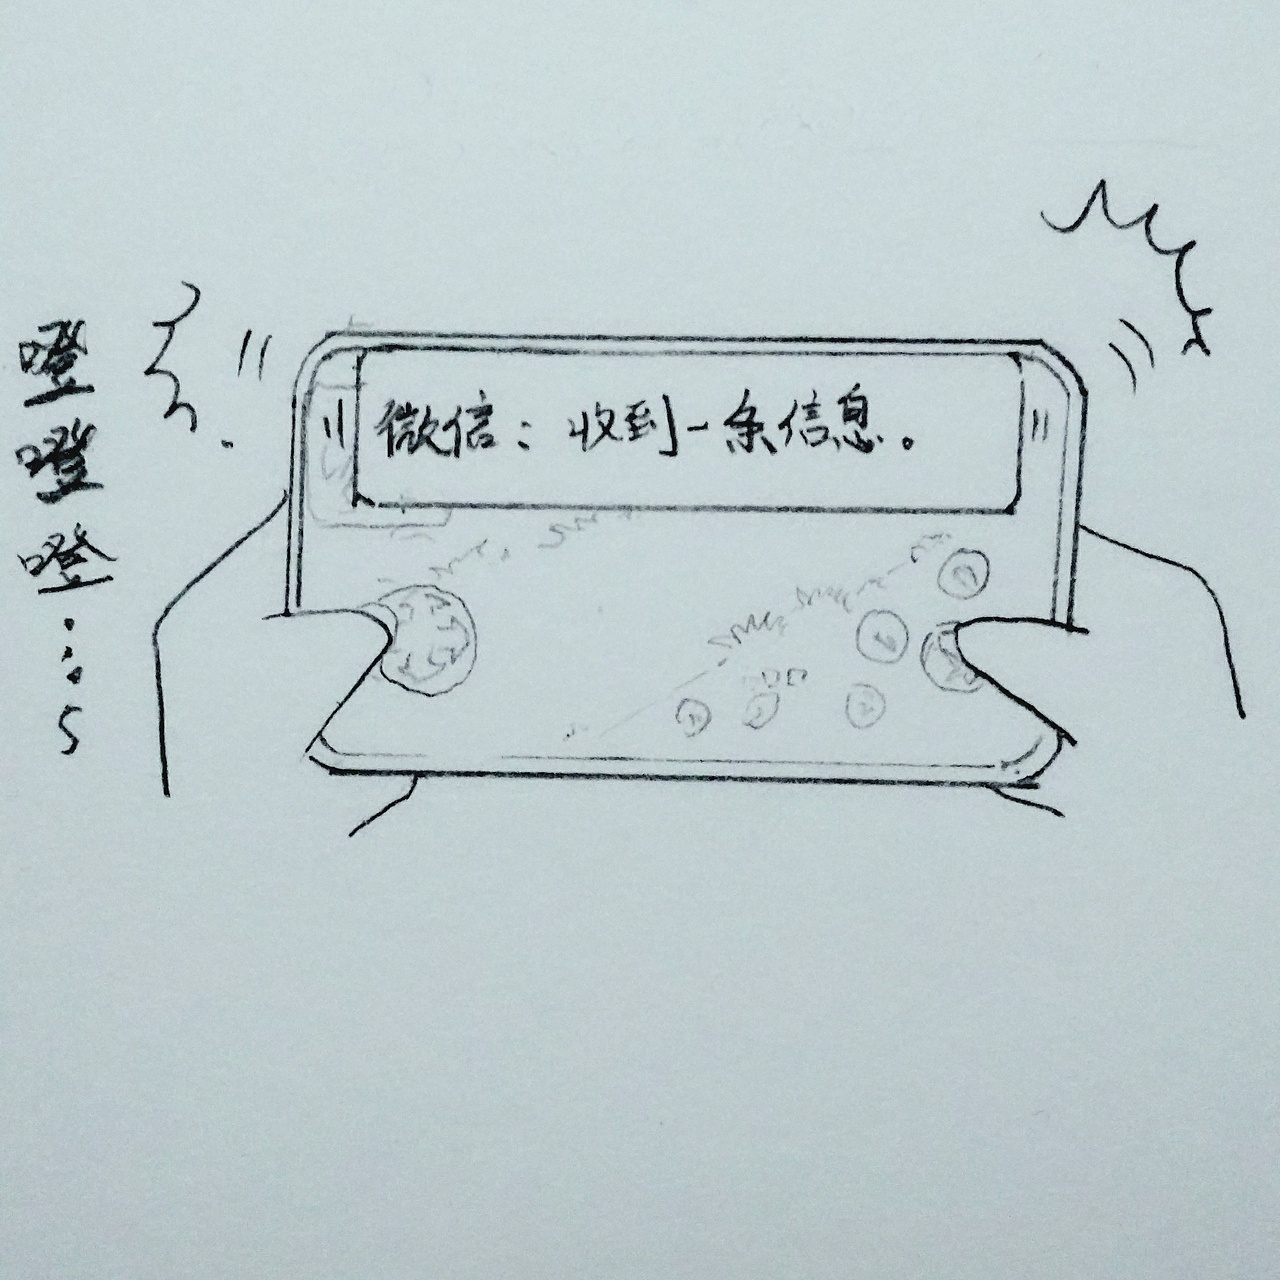 噔
噔
噔
微信：收到一条信息。